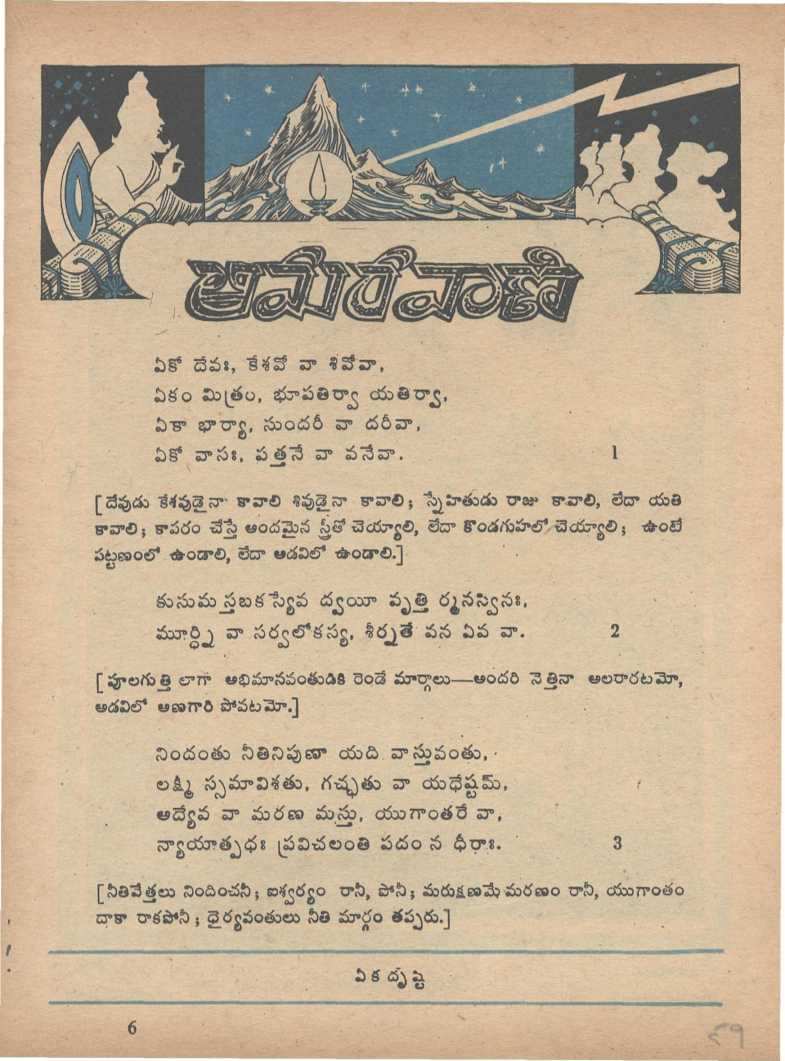 అమరవాణి
ఏకో దేవః, కేశవో వా శివోవా,
ఏకం మిత్రం, భూపతిర్వా యతిర్వా,
ఏకా భార్యా, సుందరీ వా దరీవా,
ఏకో వాసః, పత్తనే వా వనేవా. 1
[దేవుడు కేశవుడైనా కావాలి శివుడైనా కావాలి; స్నేహితుడు రాజు కావాలి, లేదా యతి
కావాలి; కాపరం చేస్తే అందమైన స్త్రీతో చెయ్యాలి, లేదా కొండగుహలో చెయ్యాలి; ఉంటే
పట్టణంలో ఉండాలి, లేదా అడవిలో ఉండాలి.]
కుసుమ స్తబక స్యేవ ద్వయీ వృత్తి ర్మనస్వినః,
మూర్ధ్ని వా సర్వలోకస్య, శీర్యతే వన ఏవ వా. 2
[పూలగుత్తి లాగా అభిమానవంతుడికి రెండే మార్గాలు—అందరి నెత్తినా అలరారటమో,
అడవిలో అణగారి పోవటమో.]
నిందంతు నీతినిపుణా యది వాస్తువంతు,
లక్ష్మి స్సమావిశతు, గచ్ఛతు వా యథేష్టమ్,
అద్యేవ వా మరణ మస్తు, యుగాంతరే వా,
న్యాయాత్పథః ప్రవిచలంతి పదం న ధీరాః. 3
[నీతివేత్తలు నిందించనీ; ఐశ్వర్యం రానీ, పోనీ; మరుక్షణమే మరణం రానీ, యుగాంతం
దాకా రాకపోనీ; ధైర్యవంతులు నీతి మార్గం తప్పరు.]
ఏక దృష్టి
6